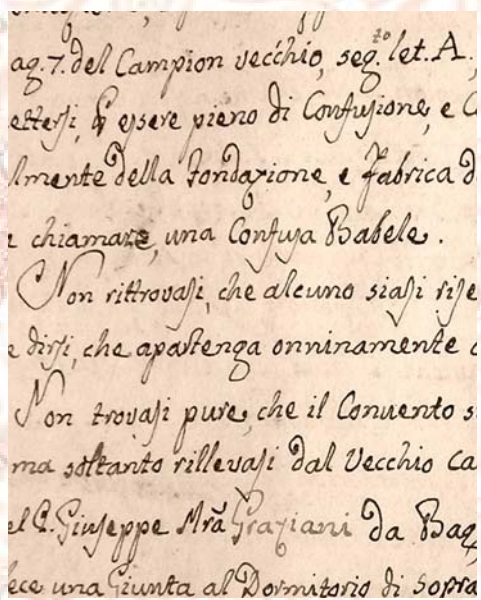 ag. 7. del Campion vecchio, seg.to let. A.
ettersi, essere pieno di Confusione, e C
lmente della Fondazione, e Fabrica d
chiamare, una Confusa Babele.
Non rittrovasi, che alcuno siasi rise
e dirsi, che apartenga onninamente
Non trovasi pure, che il Convento s
ma soltanto rillevasi dal Vecchio Ca
el P. Giuseppe Mrã Graziani da Bag
ece una Giunta al Dormitorio di sopra